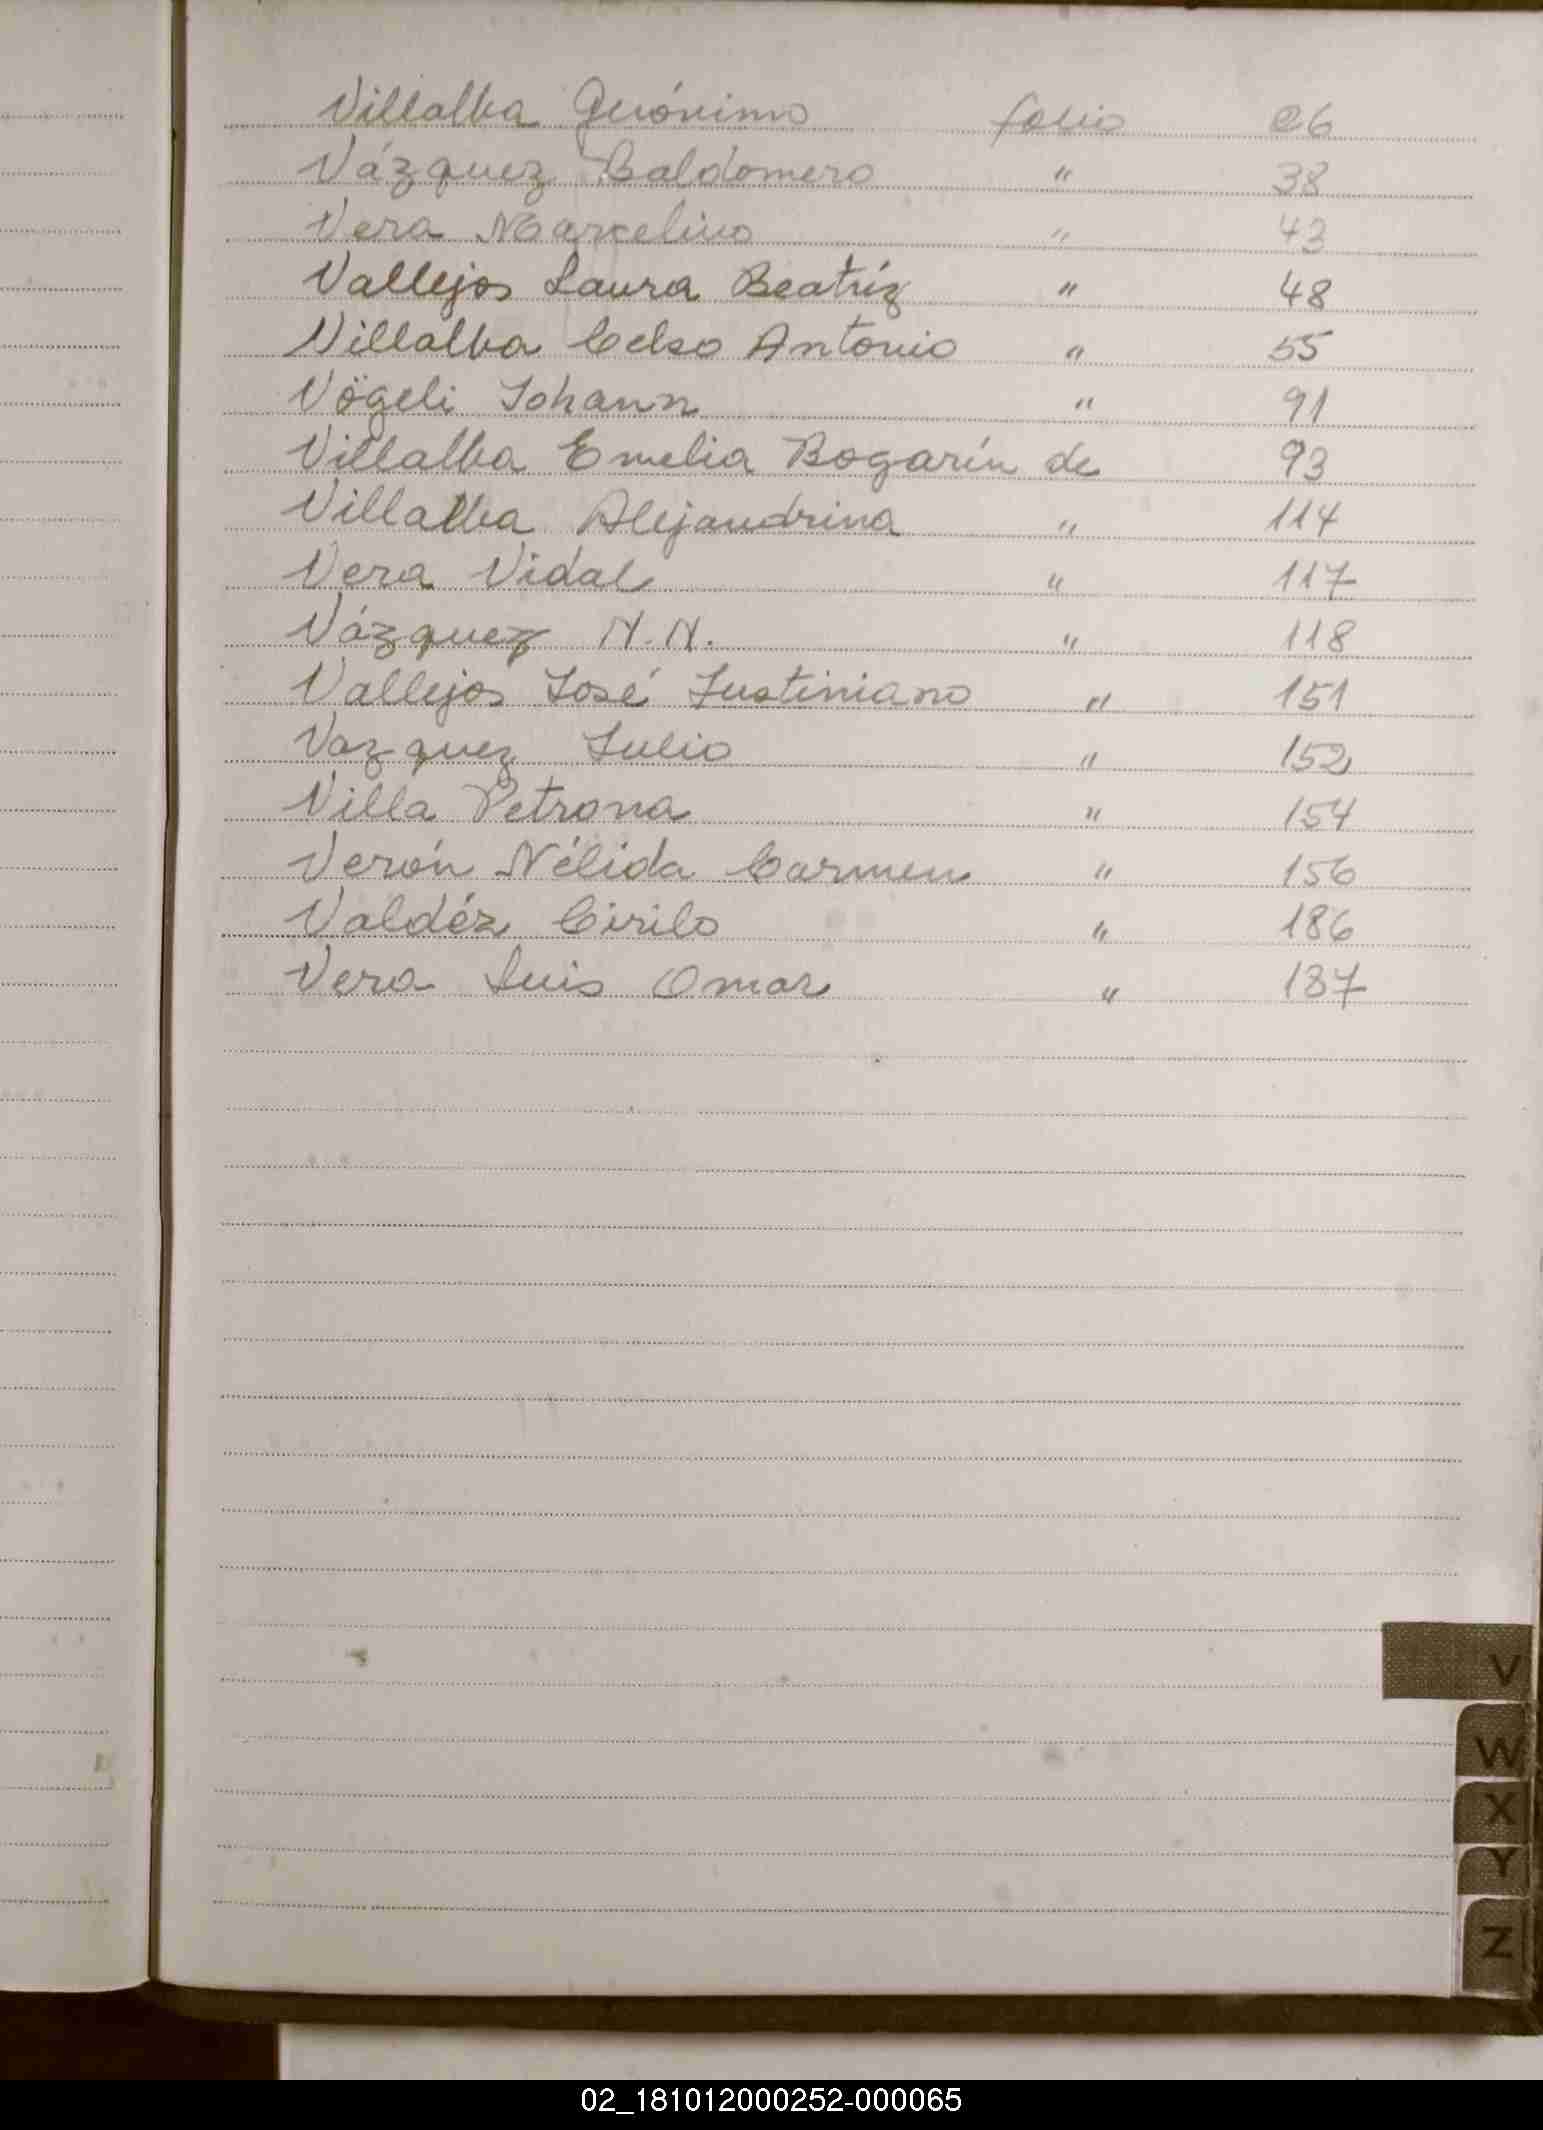 Villalba Gerónimo folio 26
Vázquez Baldomero " 38
Vera Marcelino " 43
Vallejos Laura Beatríz " 48
Villalba Celso Antonio " 55
Vögeli Johann " 91
Villalba Emelia Bogarín de 93
Villalba Alejandrina " 114
Vera Vidal " 117
Vázquez N.N. " 118
Vallejos José Justiniano " 151
Vazquez Julio " 152
Villa Petrona " 154
Verón Nélida Carmen " 156
Valdéz Cirilo " 186
Vera Luis Omar " 187
V
W
X
Y
Z
02_181012000252-000065